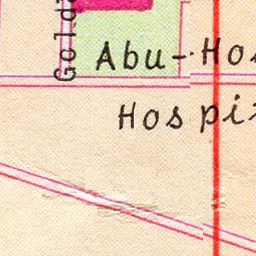 Gold
Abu-Hos
Hospi